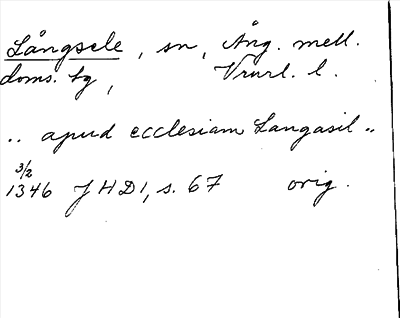 Långsele, sn, Ång. mell.
doms. tg,
.. apud ecclesiam Langasil ..
3/2
1346 JHD1, s. 67 orig.